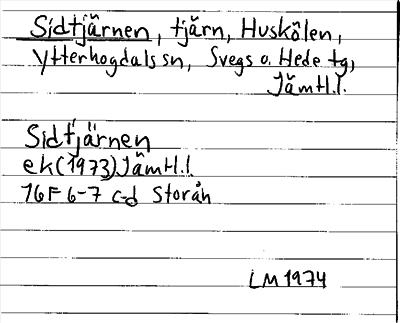 Sidtjärnen, tjärn, Huskölen,
Ytterhogdals sn, Svegs o. Hede tg,
Jämtl.l.
Sidtjärnen
ek (1973) Jämtl.l
16F 6-7 c-d Storån
LM 1974